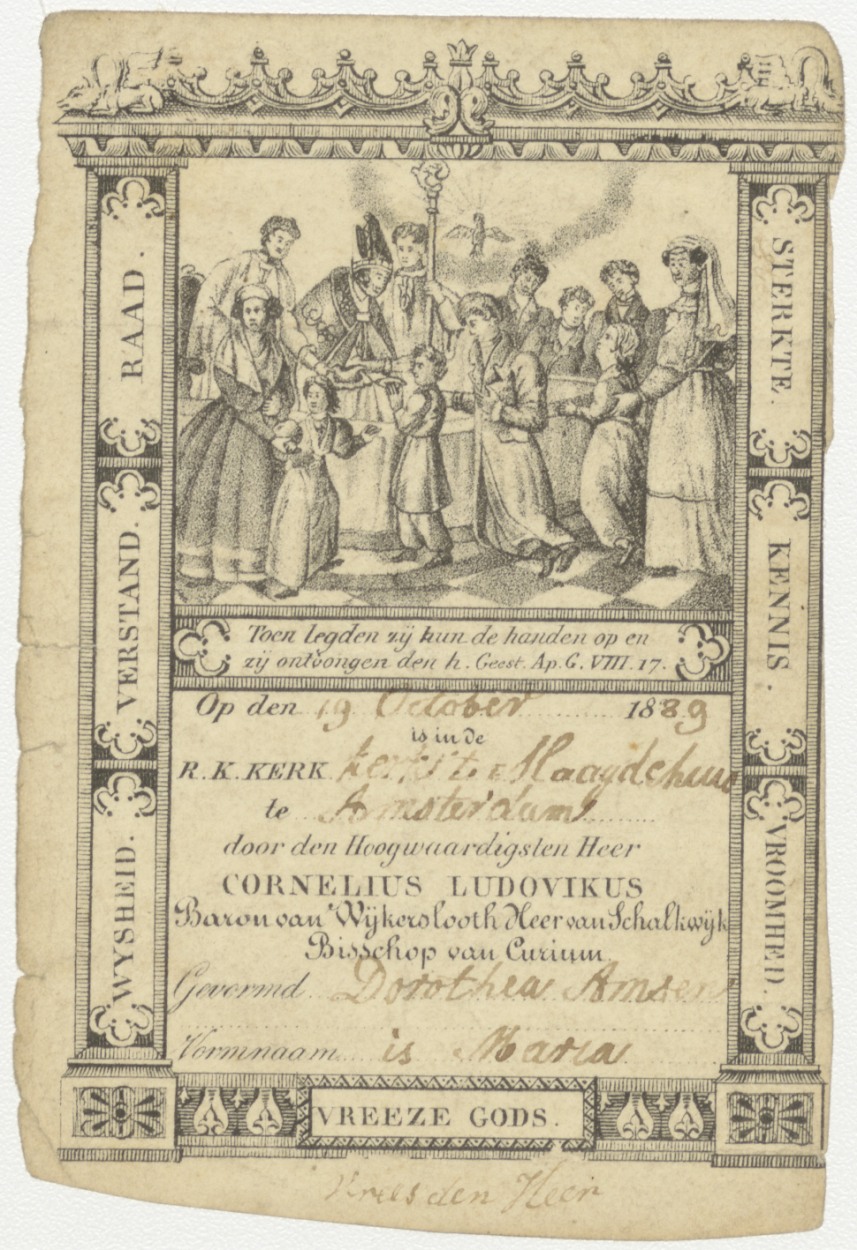 RAAD.
VERSTAND.
WYSHEID.
STERKTE.
KENNIS.
VROOMHEID.
Toen legden zij hun de handen op en
zij ontvongen den h. Geest. Ap. G. VIII. 17.
Op den 19 October 1839
is in de
R. K. KERK kerk 't Maagdehuis
te Amsterdam
door den Hoogwaardigsten Heer
CORNELIUS LUDOVIKUS
Baron van Wijkerslooth Heer van Schalkwijk
Bisschop van Curium
Gevormd Dorothea
Vormnaam is Maria
VREEZE GODS.
Vrees den Heer